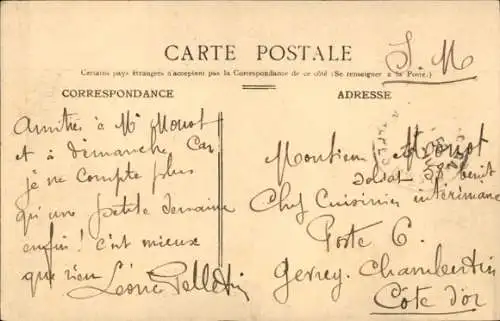 CARTE POSTALE
Certains pays étrangers n'acceptent pas la Correspondance de ce côté (Se renseigner à la Poste.)
S. M
CORRESPONDANCE
ADRESSE
Amitiés à Mr Monot
et à démanche Car
je ne compte plus
qu'une petite semaine
enfin! c'est mieux
que rien
Léonce Pelletin
Monsieur Monot
soldat
Chef Cuisinier intérimaire
Poste 6.
Gevrey-Chambertin
Côte d'or